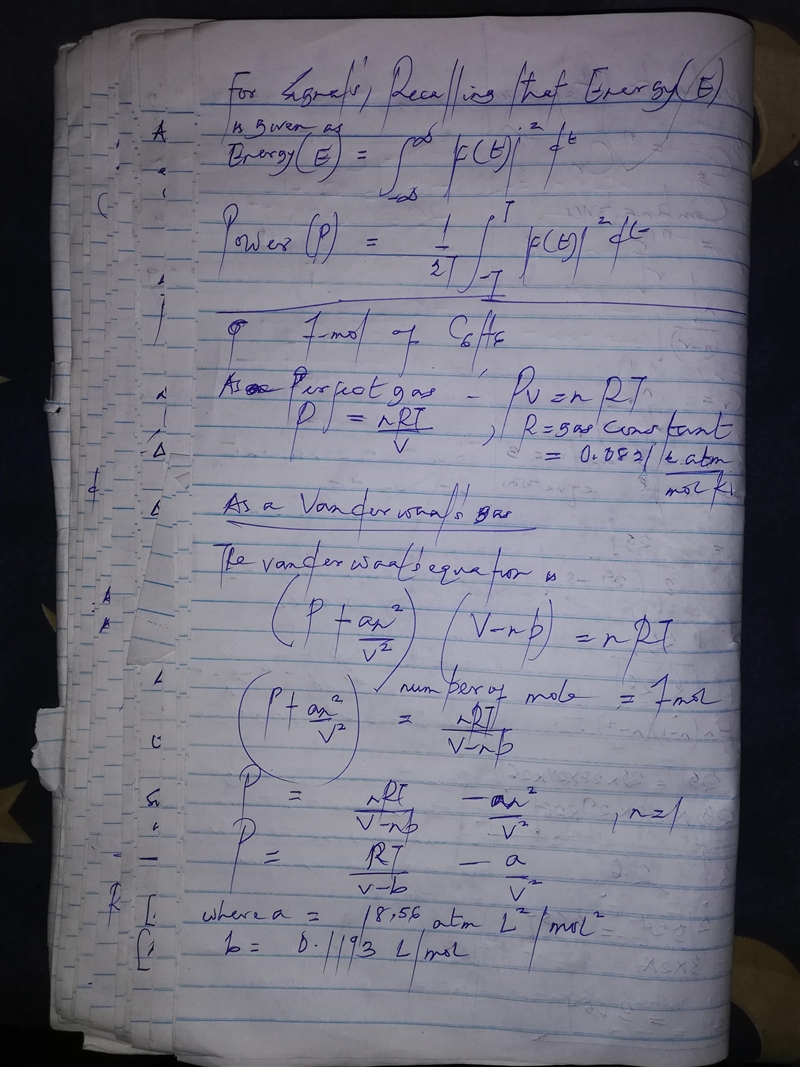 For Signals, Recalling that Energy(E)
is given as
Energy(E) = ∫_{-∞}^{∞} |f(t)|² dt
Power (P) = 1/2T ∫_{-T}^{T} |f(t)|² dt
1-mol of C₆H₆
As Perfect gas - PV = nRT
P = nRT/V , R = gas constant
= 0.0821 L atm/mol K
As a Vander waal's gas
The vander waal's equation is
(P + an²/V²) (V-nb) = nRT
number of mole = 1 mol
(P + an²/V²) = nRT/V-nb
P = nRT/V-nb - an²/V² , n=1
P = RT/V-b - a/V²
where a = 18.56 atm L²/mol²
b = 0.1193 L/mol